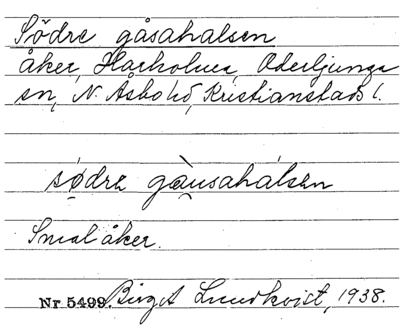 Södre gåsahalsen
åker, Harholma, Oderljunga
sn, N. Åsbo hd, Kristianstads l.
södra gàusahálsen
Smal åker.
Nr 5499. Birgit Lundkvist, 1938.